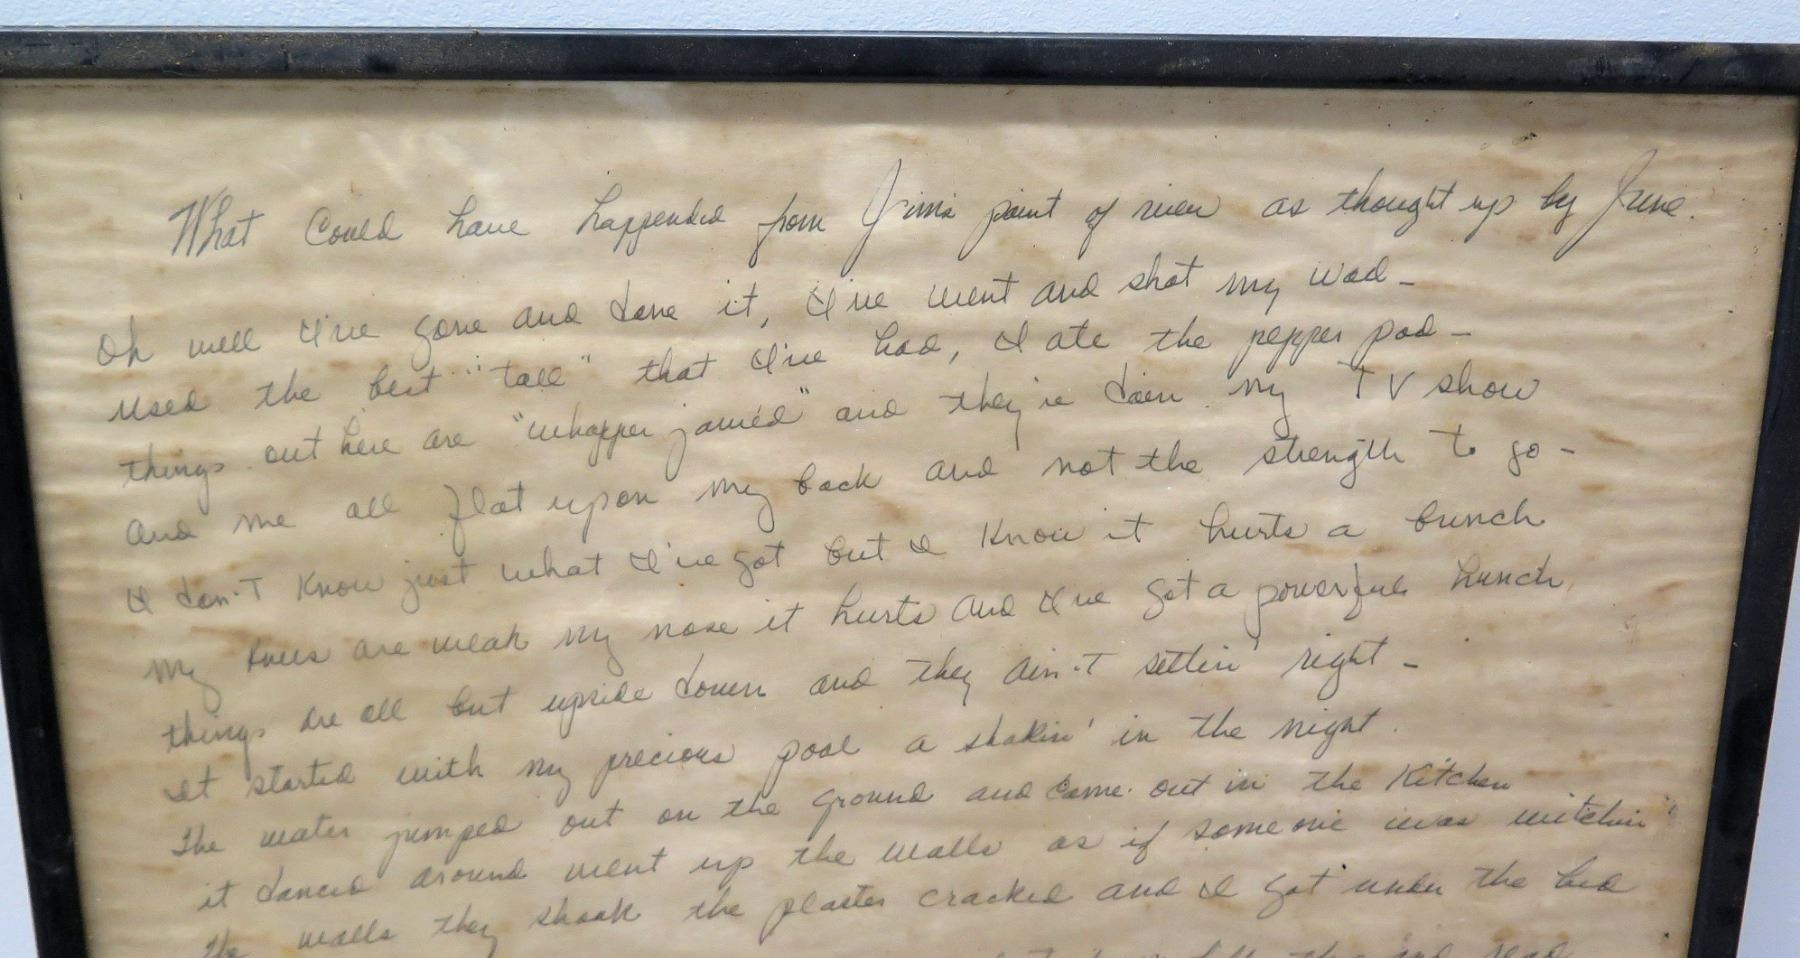 What Could have happended from Jim's point of view as thought up by June.
Oh well I've gone and done it, I've went and shot my wad -
used the best "tall" that I've had, I ate the pepper pod -
things out here are "whopper jawed" and they're doin my TV show
and me all flat upon my back and not the strength to go -
I don't Know just what I've got but I Know it hurts a bunch
my knees are weak my nose it hurts and I've got a powerful hunch,
things are all but upside down and they ain't settin' right -
It started with my precious pool a shakin' in the night.
The water jumped out on the ground and came out in the Kitchen
it danced around went up the walls as if someone was witchin'
the walls they shook the plaster cracked and I got under the bed
and